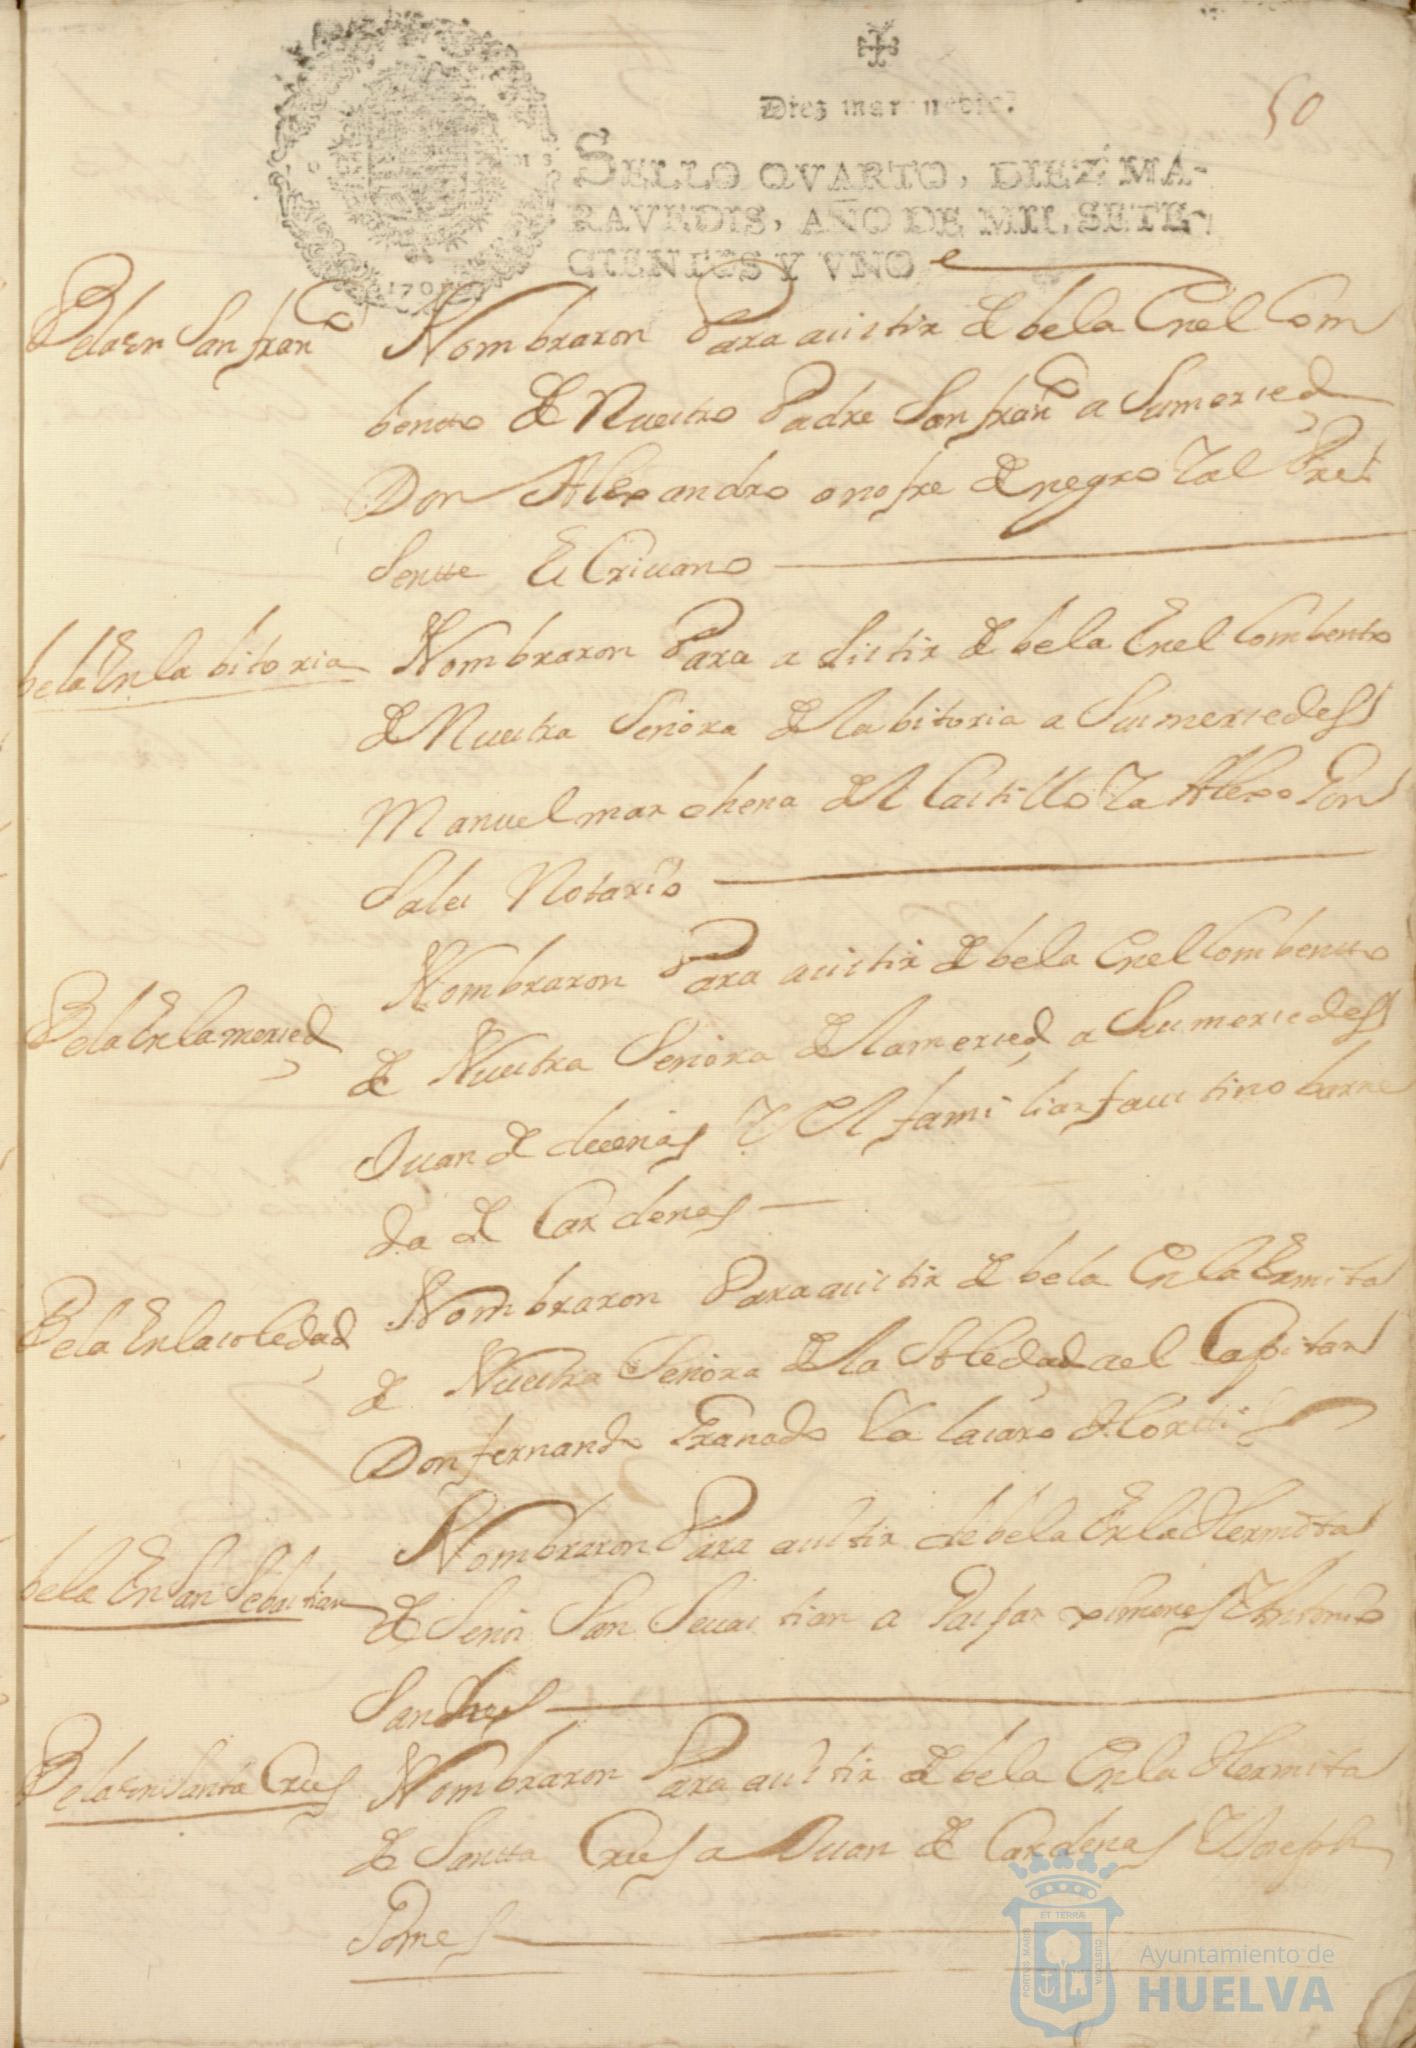 50
Diez maravedis.
SELLO QVARTO, DIEZ MA-
RAVEDIS, AÑO DE MIL SETE-
CIENTOS Y VNO
1701
Bela en San franco
Nombraron Para asistir de bela En el Com
bentto de Nuestro Padre San franco a Sumersed
Don Alexandro onofre de negro Y al Pres
Sentte Escriuano
bela En la bitoria
Nombraron Para asistir de bela En el Combento
de Nuestra Señora de la bitoria a Susmersedess
Manuel marchena del Castillo Y a Alexo Gon
Sales Notario
Bela En la mersed
Nombraron Para asistir de bela En el Combentto
de Nuestra Señora de la mersed a Susmersedess
Juan de dueñas Y el familiar faustino barre
da de Cardenas
Bela En la soledad
Nombraron Para asistir de bela En la Ermita
de Nuestra Señora de la Soledad a el Capitan
Don fernando Granado Y a lasaro
bela En San Sebastian
Nombraron Para asistir de bela En la Hermita
de Señor San Seuastian a Gaspar ximenes Y Antonio
Sanches
Bela en Santa Crus
Nombraron Para asistir de bela En la Hermita
de Santta Crus a Juan de Cardenas Y Joseph
Gomes
ET TERRÆ
PORTUS MARIS
CUSTODIA
Ayuntamiento de
HUELVA